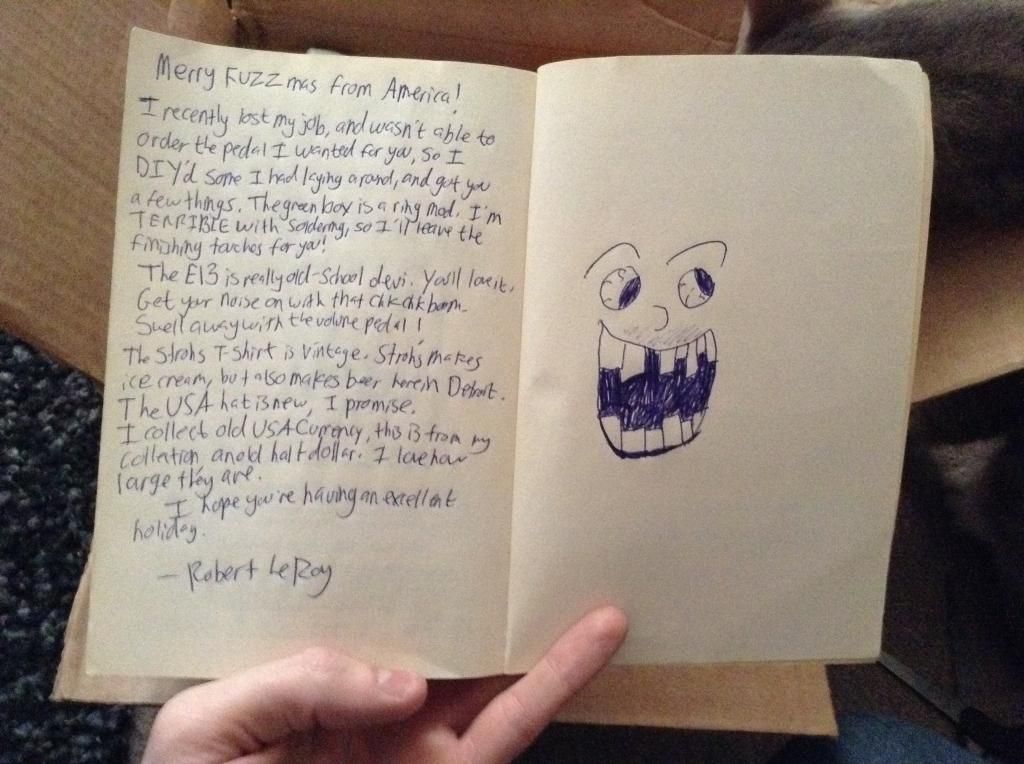 Merry FUZZmas from America!
I recently lost my job, and wasn't able to
order the pedal I wanted for you, so I
DIY'd some I had laying around, and got you
a few things. The green box is a ring mod. I'm
TERRIBLE with soldering, so I'll leave the
finishing touches for you!
The E13 is really old-school devi. You'll love it.
Get your noise on with that chk chk boom.
Swell away with the volume pedal!
The Strohs T-Shirt is vintage. Stroh's makes
ice cream, but also makes beer here in Detroit.
The USA hat is new, I promise.
I collect old USA Currency, this is from my
collection, an old half dollar. I love how
large they are.
I hope you're having an excellent
holiday.
— Robert LeRoy